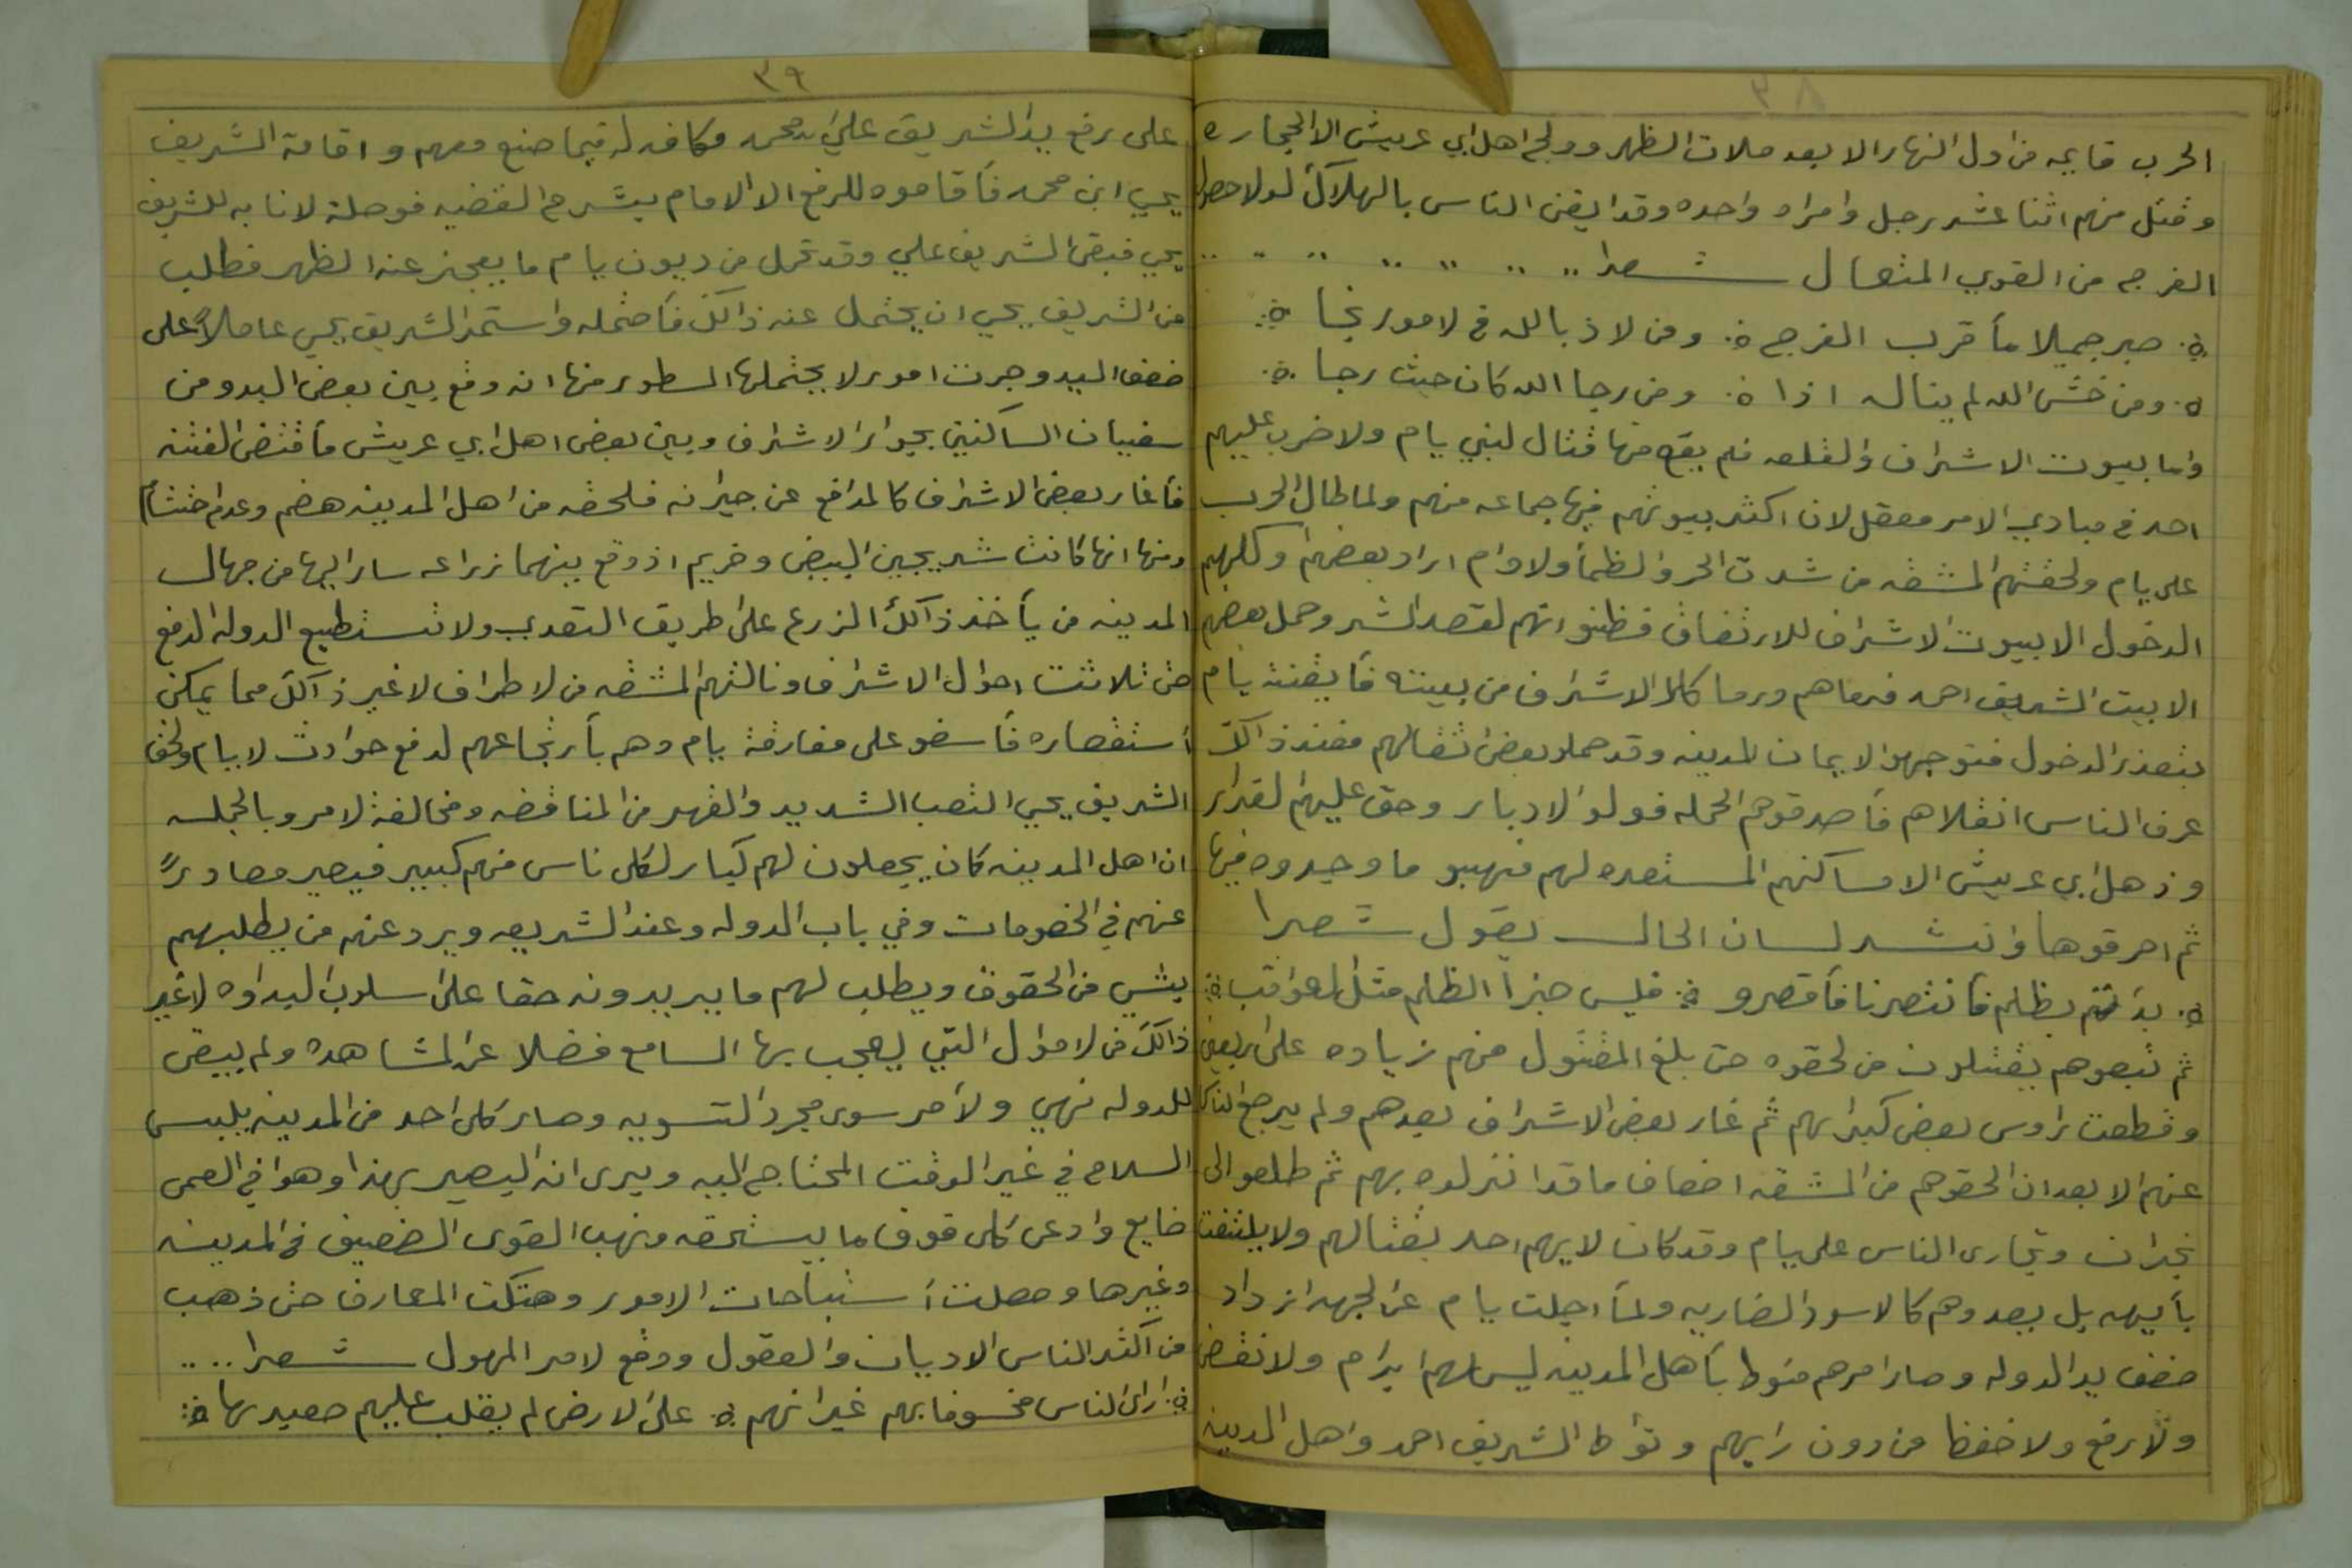 ٣٨
الحرب قايمه من اول النهار الا بعد صلات الظهر وولج اهل ابي عريش الا الحجاره
وقتل منهم اثنا عشر رجل وامراه واحده وقد ايقن الناس بالهلاك لولا حصول
الفرج من القوي المتعال شعرا
صبر جميلا ما قرب الفرج ومن لاذ بالله في لامور نجا
ومن خشى الله لم ينال اذا ومن رجا الله كان حيث رجا
واما بيوت الاشراف والقلعه فلم يقع منها قتال لبني يام ولا ضرب عليهم
احد في مبادي الامر معقل لان اكثر بيوتهم فيها جماعه منهم ولما طال الحرب
على يام ولحقتهم المشقه من شدت الحر والظمأ ولاوام اراد بعضهم وكلهم
الدخول الا بيوت الاشراف للارتفاق فظنو انهم لقصد الشر وحمل بعضهم
الا بيت الشريف احمد فرماهم ورما كل الاشراف من بيته فأيقنت يام
بتعذر الدخول فتوجهوا الا يمان المدينه وقد حملو بعض اثقالهم فعند ذالك
عرف الناس انفلاهم فأصدقوهم الحمله فولو الادبار وحق عليهم الفرار
وذهل ابي عريش الا مساكنهم المستعده لهم فنهبو ما وجدوه فيها
ثم احرقوها وانشد لسان الحال يقول شعرا
بدأتم بظلم فأنتصرنا فأقصرو فليس جزأ الظلم مثل العواقب
ثم تبعوهم يقتلون من لحقوه حتى بلغ المقتول منهم زياده على اربعين
وقطعت رأوس بعض كبرائهم ثم غار بعض الاشراف بعدهم ولم يرجع الناس
عنهم الا بعد ان الحقوهم من المشقه اضعاف ما قد انزلوه بهم ثم طلعو الى
نجران وتجارى الناس على يام وقد كان لا يهم احد بقتالهم ولا يلتفت
بأيهه بل يعدوهم كالاسود الضاريه ولما اجلت يام عن الجهه ازداد
ضعف يد الدوله وصار امرهم منوط بأهل المدينه ليس لهم ابرام ولا نقض
ولا رفع ولا خفظ من دون رايهم وتوأطا الشريف احمد واهل المدينه
٣٩
على رفع يد الشريف علي ابن محمد مكافه له فيما صنع معهم واقامة الشريف
يحيى ابن محمد فأقاموه للرفع الا الامام بشرح القضيه فوصلة لانابه للشريف
يحيى فبقى الشريف علي وقد تحمل من ديون يام ما يعجز عنه الظهر فطلب
من الشريف يحيى ان يحتمل عنه ذالك فأحتمله واستمر الشريف يحيى عاملاً على
ضعف اليد وجرت امور لا يحتملها السطور منها انه وقع بين بعض البدو من
سفيان الساكنين بجوار الاشراف وبين بعض اهل ابي عريش ما أقتضى الفتنه
فأغار بعض الاشراف كالمدافع عن جيرانه فلحقه من اهل المدينه هضم وعدم احتشام
ومنها انها كانت شريجين البيض وخريم اذ وقع بينهما زراعه سار اليها من جهال
المدينه من يأخذ ذالك الزرع على طريق التعدي ولا تستطيع الدوله الدفع
حتى تلاشت احوال الاشراف ونالتهم المشقه من لاطراف لا غير ذالك مما يمكن
أستقصاره فأسفو على مفارقة يام وهم بأرتجاعهم لدفع حوادث لايام ولحق
الشريف يحيى التعب الشديد والقهر من المناقضه ومخالفة لامر وبالجمله
ان اهل المدينه كان يجعلون لهم كبار لكل ناس منهم كبير فيصير معادرً
عنهم في الخصومات وفي باب الدوله وعند الشريعه ويرد عنهم من يطلبهم
بشي من الحقوق ويطلب لهم ما يريدونه حقا على اسلوب البداوه لاغير
ذالك من لاموال التي يعجب بها السامع فضلا عن المشاهده ولم يبقى
للدوله نهي ولا أمر سوى مجرد التسويه وصار كل احد من المدينه يلبس
السلاح في غير الوقت المحتاج اليه ويرى انه البصير بهذا وهوا في العمى
ضايع وادعى كل فوق ما يستحقه ونهب القوى الضعيف في المدينه
وغيرها وحصلت أستباحات الامور وهتكت المعارف حتى ذهب
من اكثر الناس الاديان والعقول ووقع لامر المهول شعرا
ارى الناس مخسوفا بهم غير انهم على الارض لم يقلب عليهم صعيدها